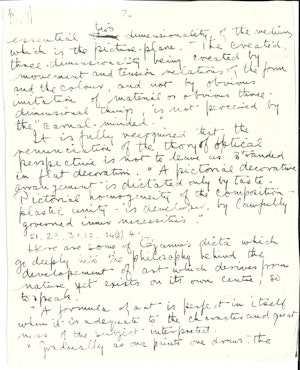 7.
essential two dimensionality of the medium,
which is the picture-plane. "The created
three-dimensionality being created by
movement and tension relations of the form
and the colour, and not by obvious
imitation of material or obvious three-
dimensional things, is not perceived by
the "carnal-minded."
It is fully recognised that the
renunciation of the theory of optical
perspective is not to leave us stranded
in flat decoration. "A pictorial decorative
arrangement is dictated only by taste.
Pictorial homogeneity of the composition -
plastic unity - is developed by lawfully
governed inner necessities."
Here are some of Cézanne's dicta which
go deeply into the philosophy behind the
development of art which derives from
nature yet exists on its own centre, so
to speak.
"A formula of art is perfect in itself
when it is adequate to the character and great
ness of the subject interpreted.
"Gradually as one paints one draws: the